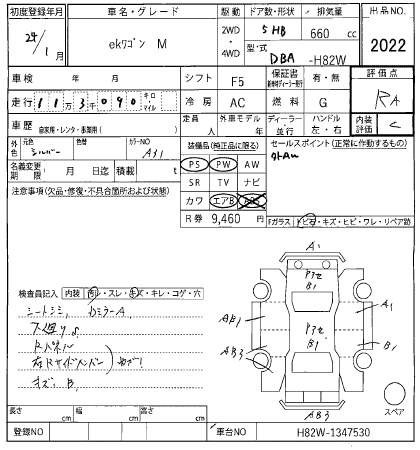 初度登録年月 車名・グレード 駆動 ドア数・形状 排気量 出品NO.
24/1月 ekワゴン M 2WD・4WD 5HB 660 cc 2022
型式 DBA -H82W
車検 年 月 シフト F5 保証書 新車時ディーラー発行 有・無 評価点
走行 113千090 キロ・マイル 冷房 AC 燃料 G RA
車歴 自家用・レンタ・事業用( ) 定員 人 外車モデル 年 ディーラー・並行 ハンドル 左・右 内装評価 C
外色 元色 シルバー 色替 カラーNO A31 装備品(純正品に限る) セールスポイント(正常に作動するもの)
名義変更期限 月 日迄 積載 t PS PW AW 外AW
注意事項(欠品・修復・不具合箇所および状態) SR TV ナビ
カワ エアB ABS
R券 9,460 円 Fガラス トビ石・キズ・ヒビ・ワレ・リペア跡
A1
検査員記入 内装 汚レ・スレ・キズ・キレ・コゲ・穴
シートシミ、DミラーA
下廻りS
Rパネル
右Rサイドメンバー
キズ B
アセ B1
AB1 A1
アセ B1
AB3 B1
AB3
スペア
長さ cm 幅 cm 高さ cm
登録NO 車台NO H82W-1347530